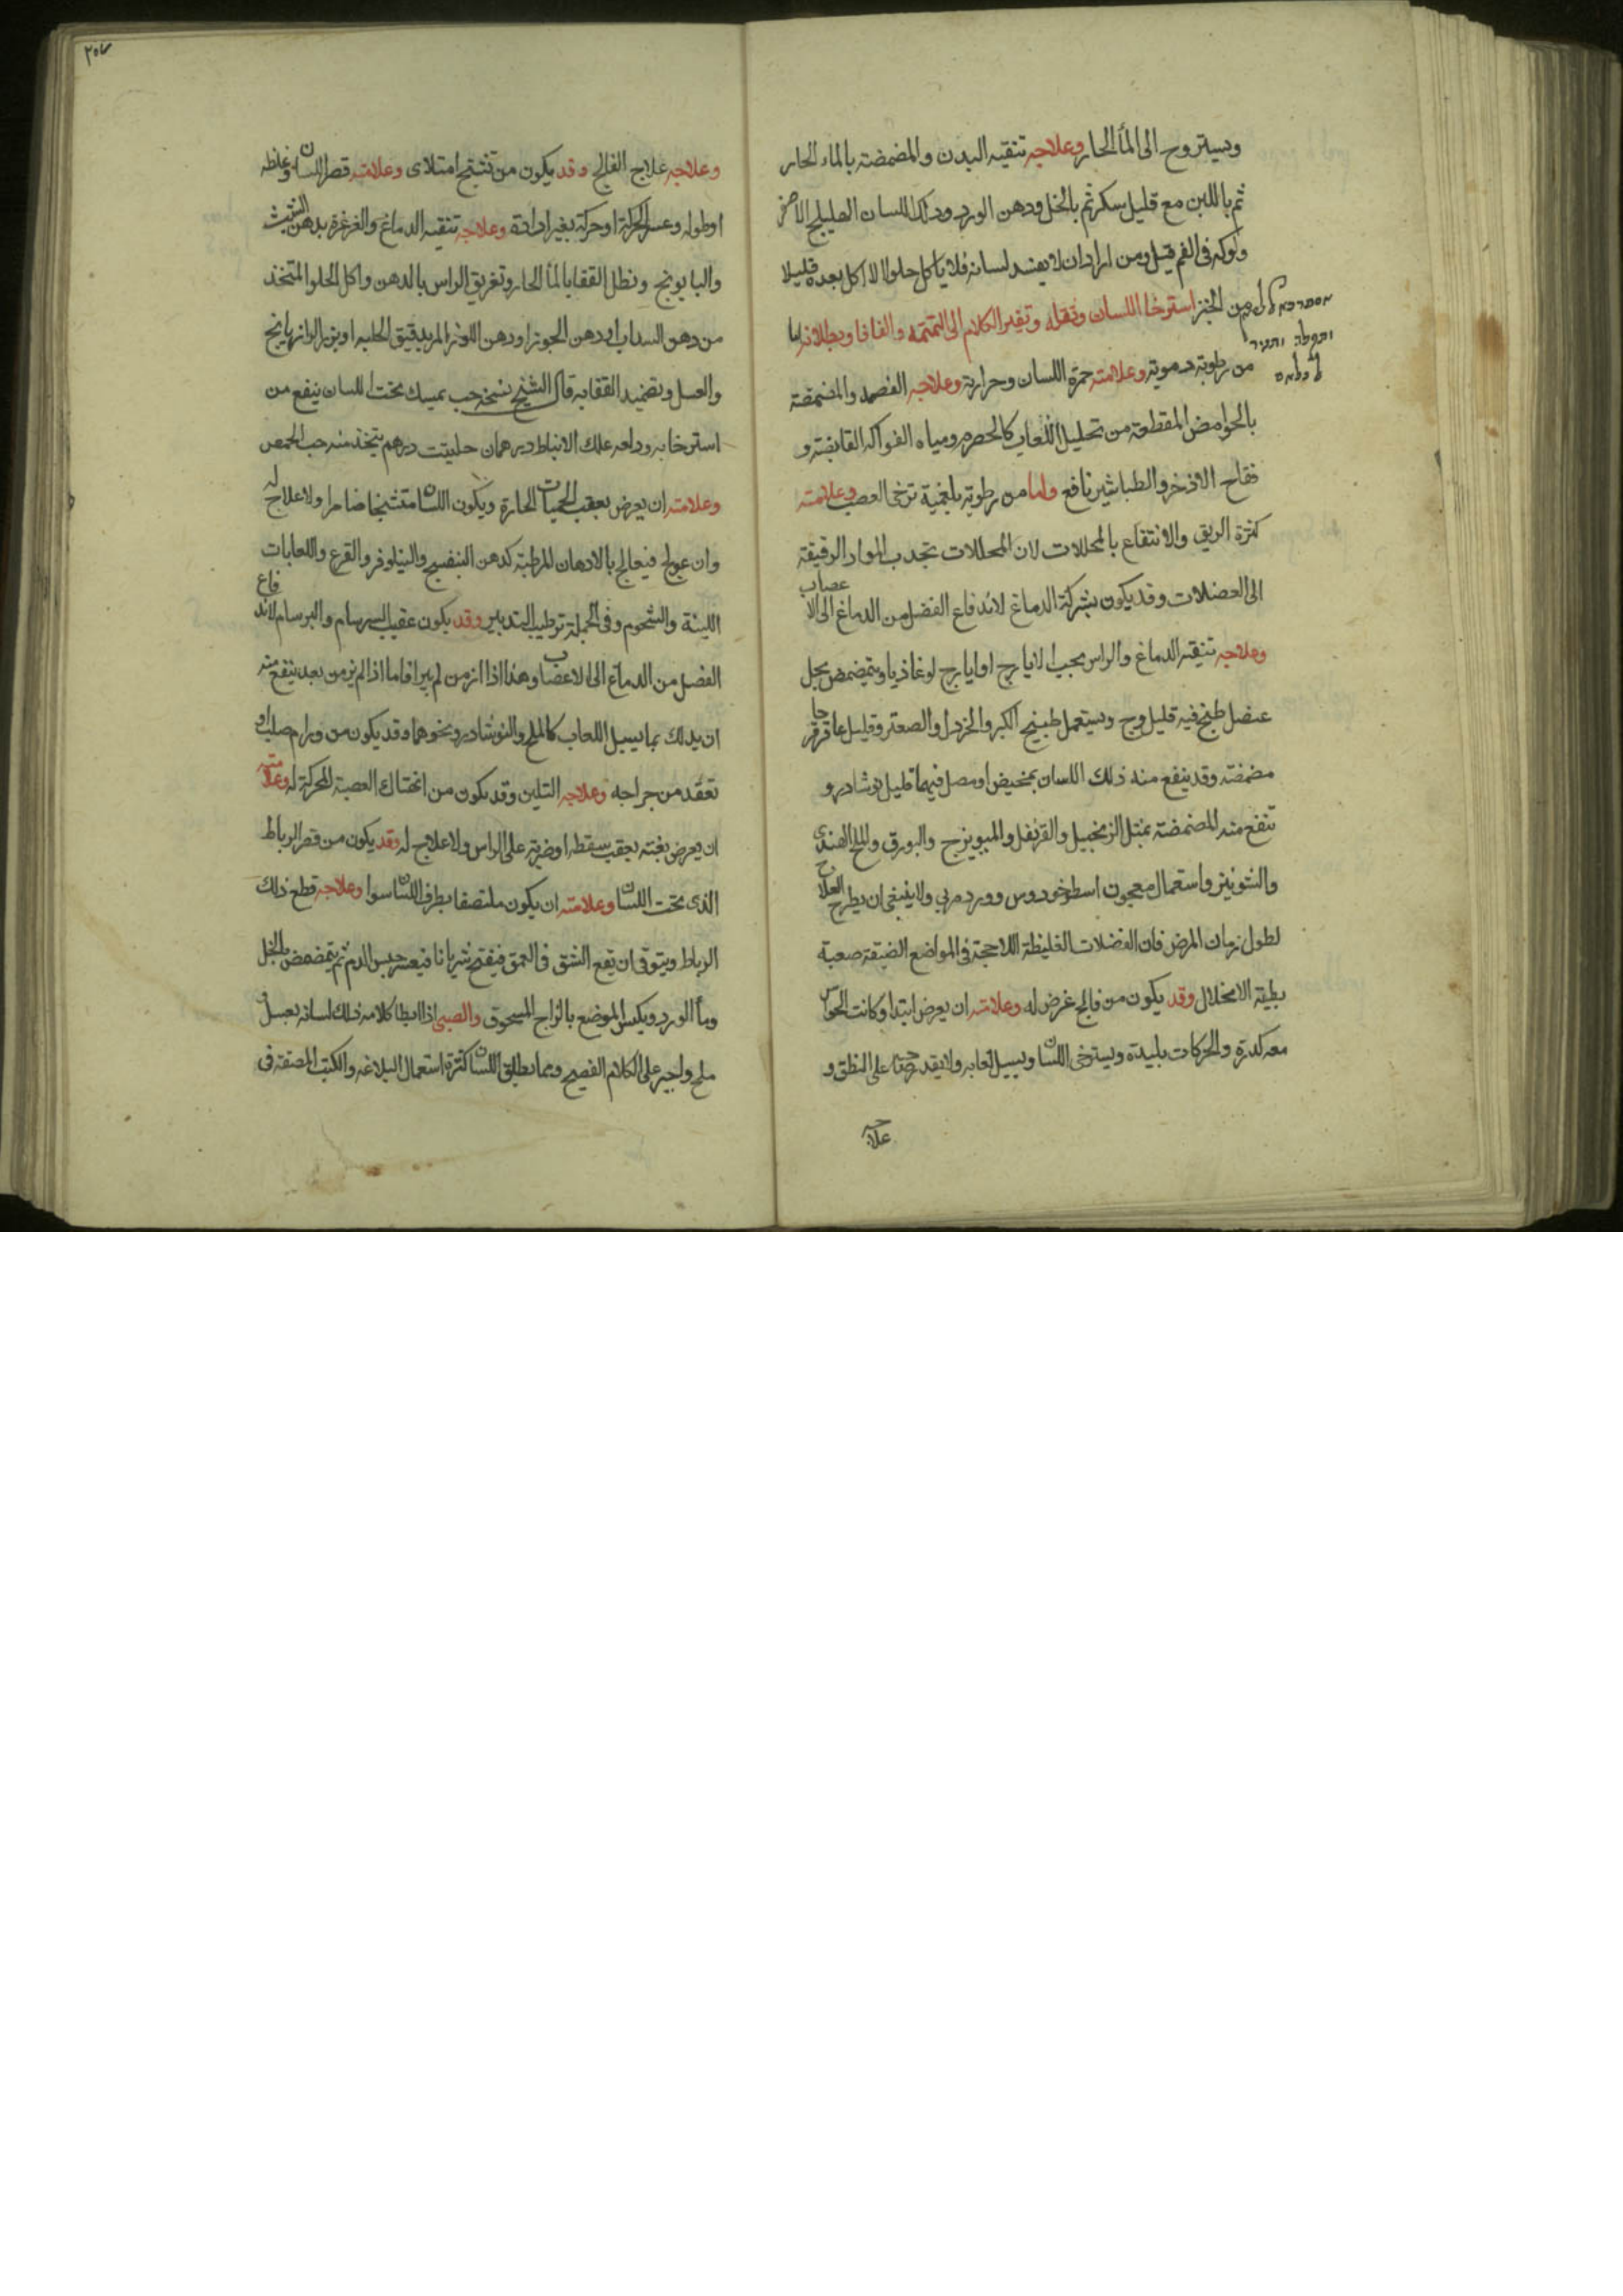 ويستروح الى المأ الحار وعلاجه تنقيه البدن والمضمضة بالماء الحار
ثم باللبن مع قليل سكر ثم بالخل ودهن الورد ودلك اللسان الهليلج الاصفر
ولوكه في الفم قيل ومن اراد ان لا يفسد لسانه فلا ياكل حلوا الا اكل بعده قليلا
من الخبز استرخا اللسان وثقله وتغير الكلام الى التمتمه والفافا وبطلانه اما
من رطوبة دموية وعلامته حمرة اللسان وحرارته وعلاجه الفصد والمضمضة
بالحوامض المقطعة من تحليل اللعاب كالحصرم ومياه الفواكه القابضة و
فقاح الاذخر والطباشير نافع واما من رطوبة بلغمية ترخى العصب وعلامته
كثرة الريق والانتقاع بالمحللات لان المحللات تجذب المواد الرقيقة
الى العضلات وقد يكون بشركة الدماغ لاندفاع الفضل من الدماغ الى الاعصاب
وعلاجه تنقيه الدماغ والراس بحب الايارج او ايارج لوغاذيا ويتمضمض بخل
عنصل طبخ فيه قليل وج ويستعمل طبيخ الكبر والخردل والصعتر وقليل عاقرقرحا
مضمضة وقد ينفع منه ذلك اللسان بمخيض او مصل فيهما قليل نوشادر و
تنفع منه المضمضة بمثل الزنجبيل والقرنفل والميويزج والبورق والملح الهندى
والشونيز واستعمال معجون اسطوخودوس وورد مربي ولا ينبغي ان يطرح العلاج
لطول زمان المرض فان الفضلات الغليظة اللاحجة في المواضع الضيقة صعبة
بطيئة الانحلال وقد يكون من فالج عرض له وعلامته ان يعرض ابتدا وكانت الحواس
معه كدرة والحركات بليدة ويسترخى اللسان ويسيل لعابه ولا يقدر صاحبه على النطق و
علاجه
٢٥٧
وعلاجه علاج الفالج وقد يكون من تشنج امتلاى وعلامته قصر اللسان وغلظه
او طوله وعسر الحركة او حركة بغير ارادة وعلاجه تنقيه الدماغ والغرغرة بدهن الشبث
والبابونج ونطل القفا بالمأ الحار وتغريق الراس بالدهن واكل الحلوا المتخذ
من دهن السداب او دهن الجوز او دهن اللوز المر بدقيق الحلبه او بزر الرازيانج
والعسل وتضميد القفا به قال الشيخ نسخه حب يمسك تحت اللسان ينفع من
استرخا به ودلعه علك الانباط درهمان حلتيت درهم يتخذ منه حب الحمص
وعلامته ان يعرض بعقب الحميات الحارة ويكون اللسان متشنجا ضامرا ولا علاج له
وان عولج فيعالج بالادهان المرطبة كدهن البنفسج والنيلوفر والقرع واللعابات
اللينة والشحوم وفي الجملة ترطيب التدبير وقد يكون عقيب السرسام والبرسام لاندفاع
الفضل من الدماغ الى الاعصاب وهذا اذا ازمن لم يبرا فاما اذا لم يزمن بعد ينفع منه
ان يدلك بما يسيل اللعاب كالملح والنوشادر ونحوهما وقد يكون من ورام صلب او
تعقد من جراحه وعلاجه التلين وقد يكون من انهتاك العصبة المحركة له وعلامته
ان يعرض بغتة بعقب سقطه او ضربة على الراس ولا علاج له وقد يكون من قصر الرباط
الذى تحت اللسان وعلامته ان يكون ملتصقا بطرف اللسان سوا وعلاجه قطع ذلك
الرباط ويتوقى ان يقع الشق في العمق فيفتح شريانا فيعسر حبس الدم ثم يتمضمض بالخل
ومأ الورد ويكبس الموضع بالزاج المسحوق والصبى اذا ابطا كلامه فدلك لسانه بعسل و
ملح واجبر على الكلام الفصيح ومما يطلق اللسان كثرة استعمال البلاغه والكتب المصنفه في